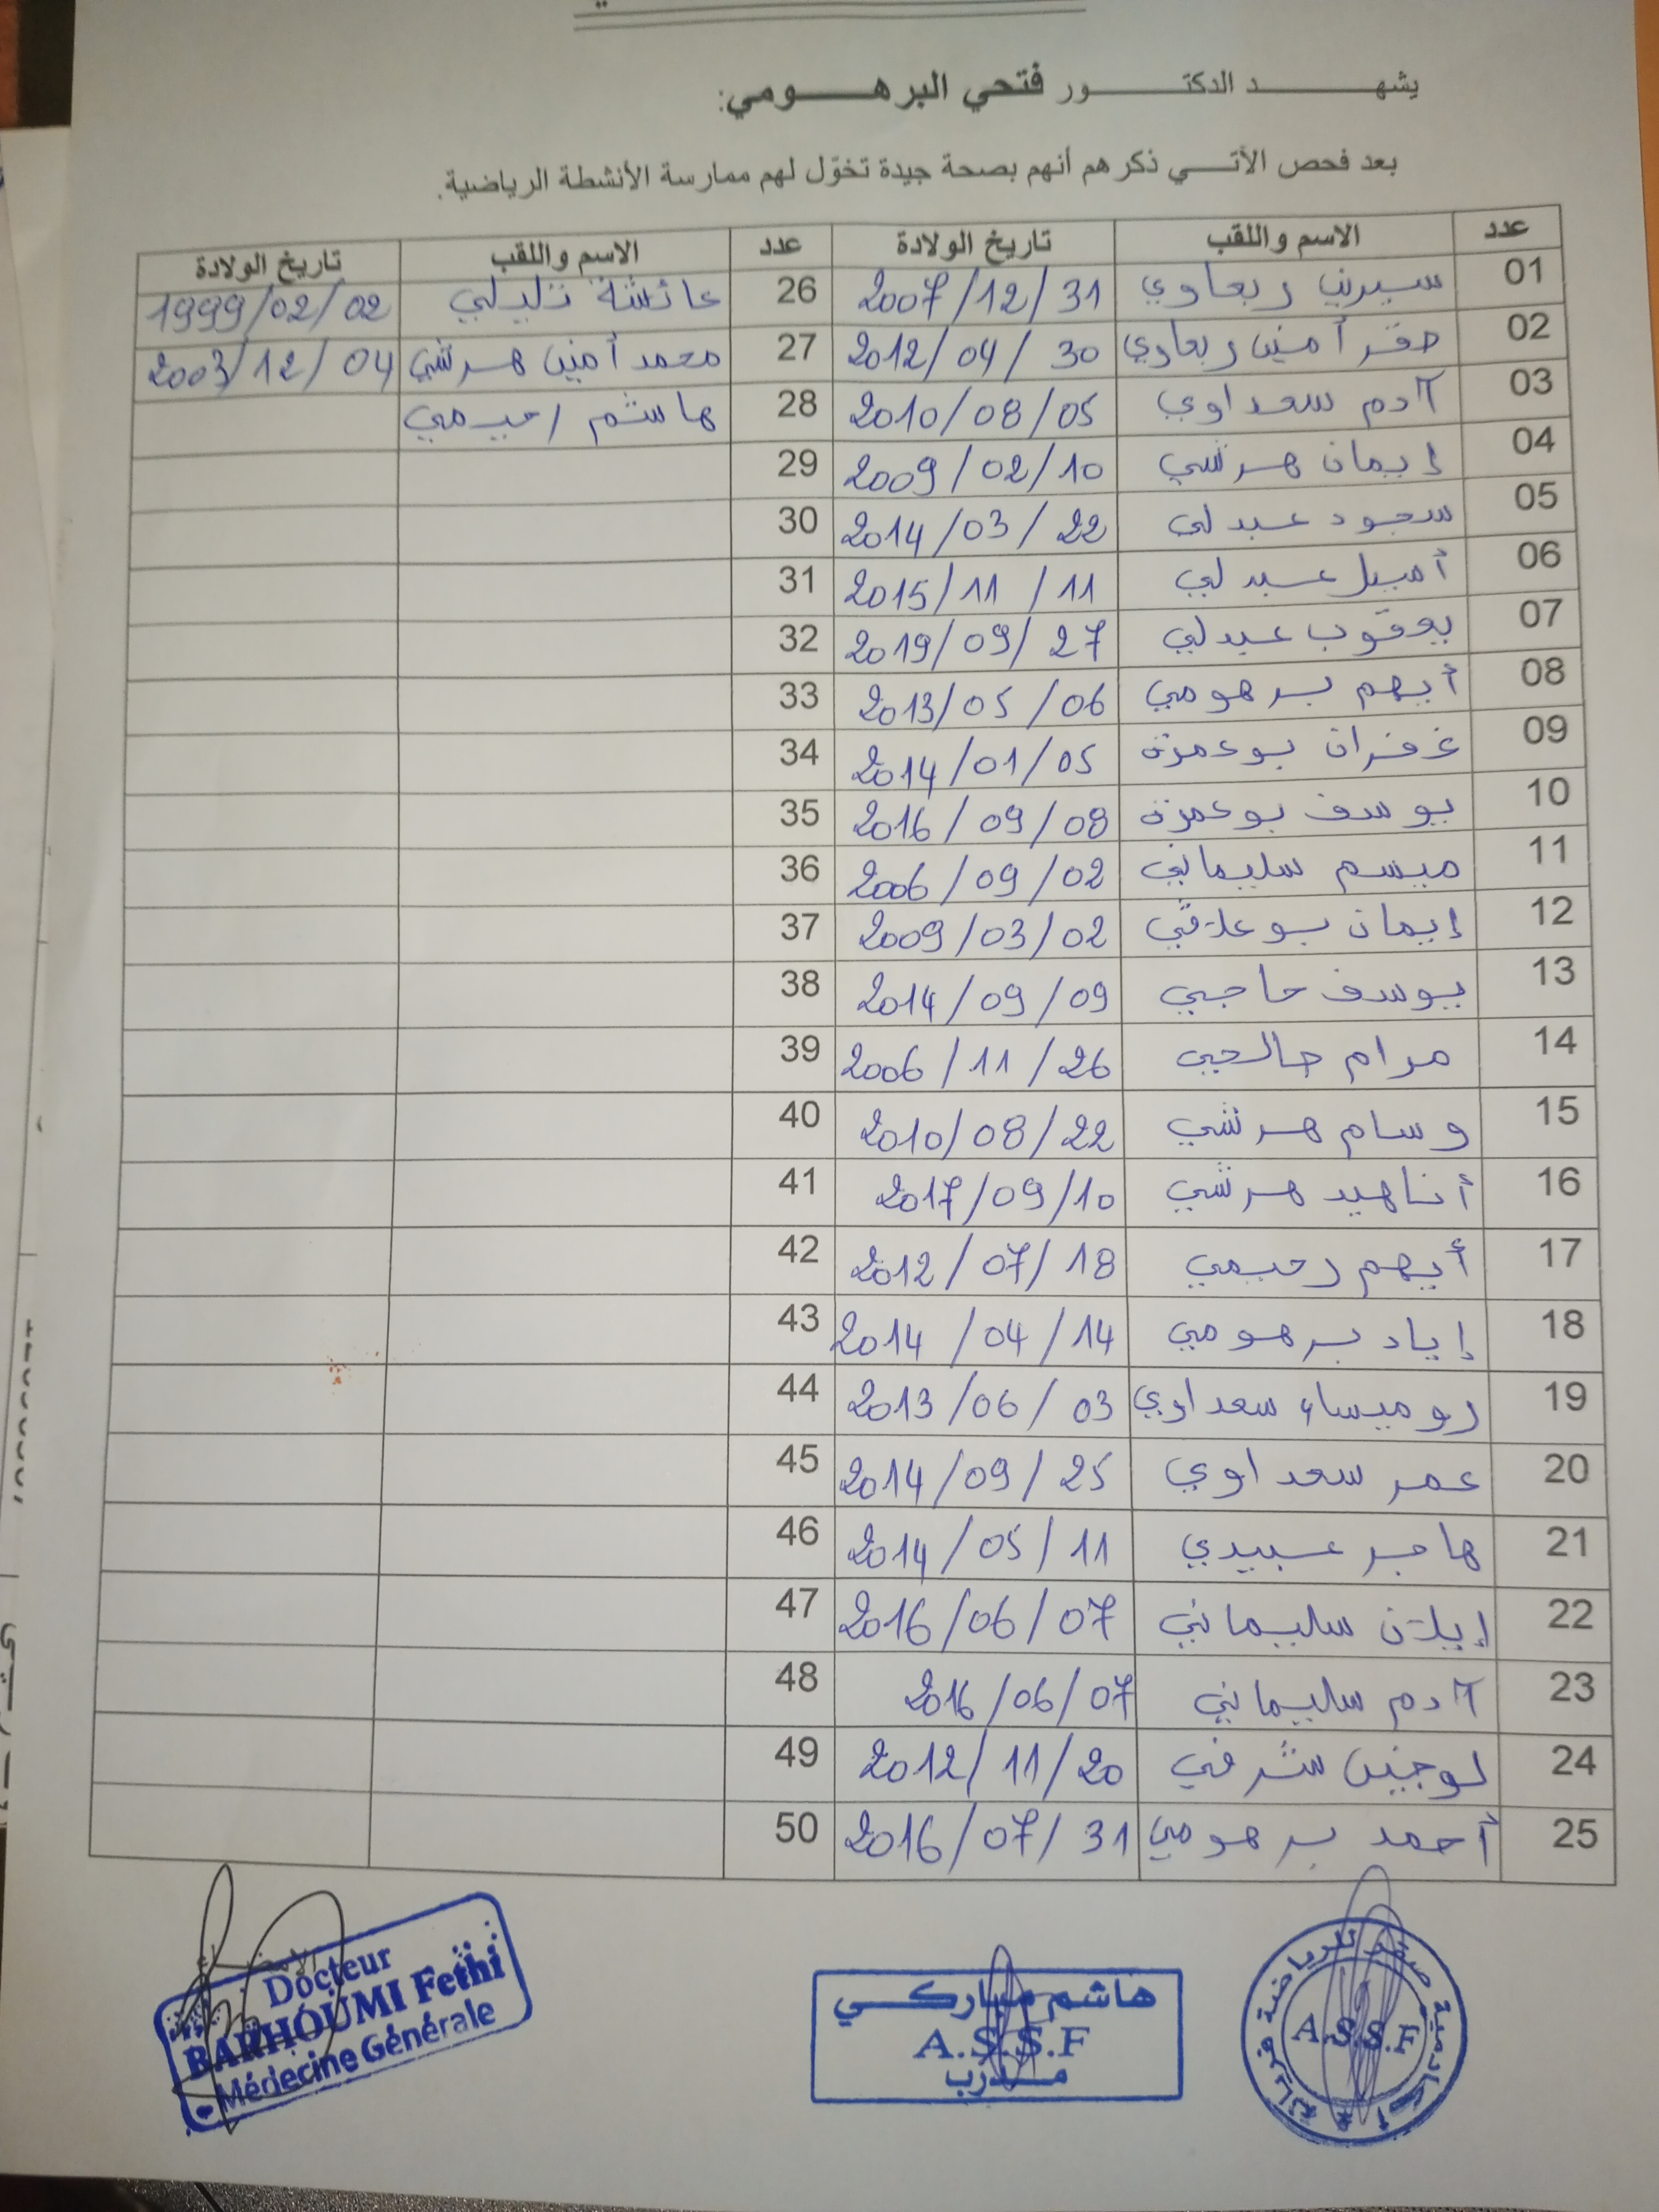 يشهد الدكتور فتحي البرهومي:
بعد فحص الأتي ذكرهم أنهم بصحة جيدة تخوّل لهم ممارسة الأنشطة الرياضية.
عدد الاسم واللقب تاريخ الولادة عدد الاسم واللقب تاريخ الولادة
01 سيرين ربعاوي 2007/12/31 26 عائشة تليلي 1999/02/02
02 صقر أمين ربعاوي 2012/04/30 27 محمد أمين هرشي 2003/12/04
03 آدم سعداوي 2010/08/05 28 هاشم رحيمي
04 إيمان هرشي 2009/02/10 29
05 سجود عبدلي 2014/03/22 30
06 أميل عبدلي 2015/11/11 31
07 يعقوب عبدلي 2019/09/27 32
08 أيهم برهومي 2013/05/06 33
09 غفران بوعمزة 2014/01/05 34
10 يوسف بوعمزة 2016/09/08 35
11 ميسم سليماني 2006/09/02 36
12 إيمان بوعلاقي 2009/03/02 37
13 يوسف حاجي 2014/09/09 38
14 مرام صالحي 2006/11/26 39
15 وسام هرشي 2010/08/22 40
16 أناهيد هرشي 2017/09/10 41
17 أيهم رحيمي 2012/07/18 42
18 إياد برهومي 2014/04/14 43
19 روميساء سعداوي 2013/06/03 44
20 عمر سعداوي 2014/09/25 45
21 هاجر عبيدي 2014/05/11 46
22 إيلان سليماني 2016/06/07 47
23 آدم سليماني 2016/06/07 48
24 لوجين شرفي 2012/11/20 49
25 أحمد برهومي 2016/07/31 50
أكاديمية صقر للرياضة فريانة
A.S.S.F
هاشم مباركي
A.S.S.F
مدرب
Docteur
BARHOUMI Fethi
Médecine Générale